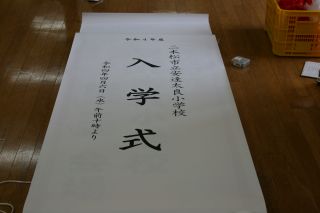 令和４年度
二本松市立安達太良小学校
入学式
令和四年四月六日（水）午前十時より